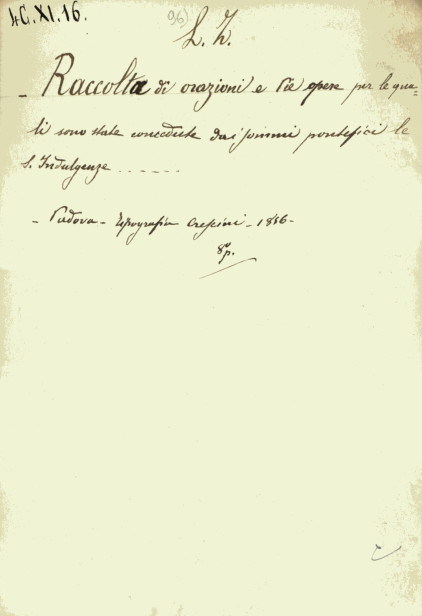 4C.XI.16.
96)
L. Z.
- Raccolta di orazioni e Pie opere per le qua-
li sono state concedute dai sommi pontefici le
S. Indulgenze ......
- Padova - Tipografia Crescini - 1856 -
8º p.